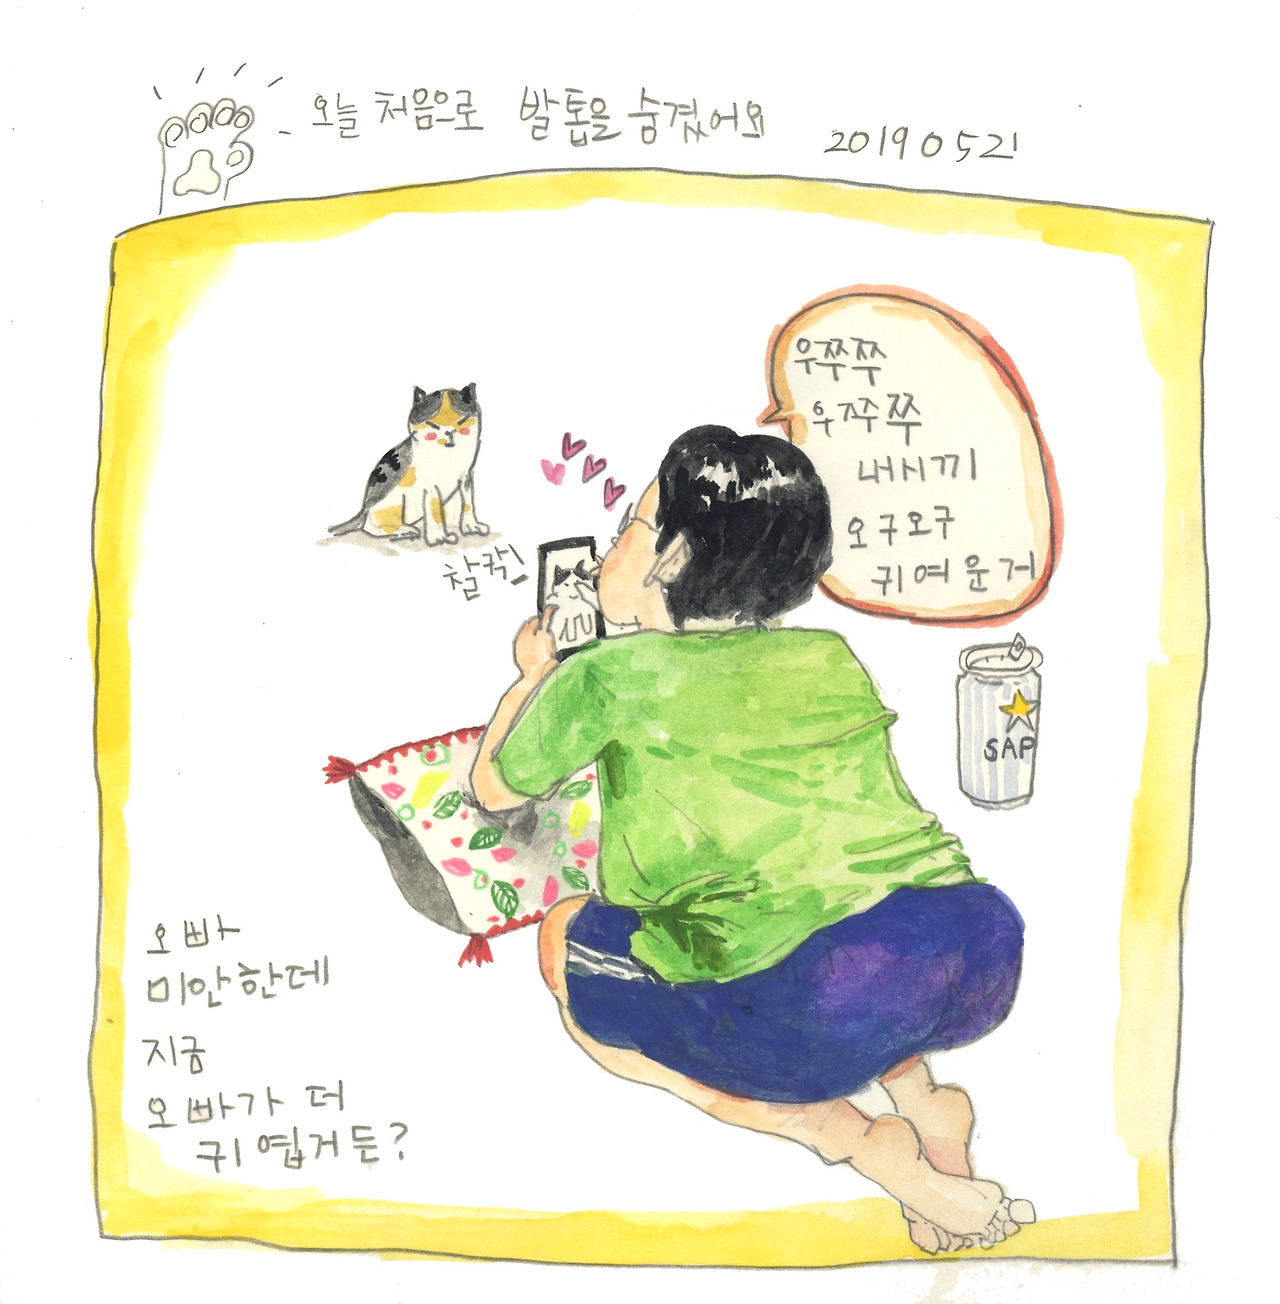 오늘 처음으로 발톱을 숨겼어요 20190521
우쭈쭈
우쭈쭈
내시끼
오구오구
귀여운거
찰칵!
SAP
오빠
미안한데
지금
오빠가 더
귀엽거든?